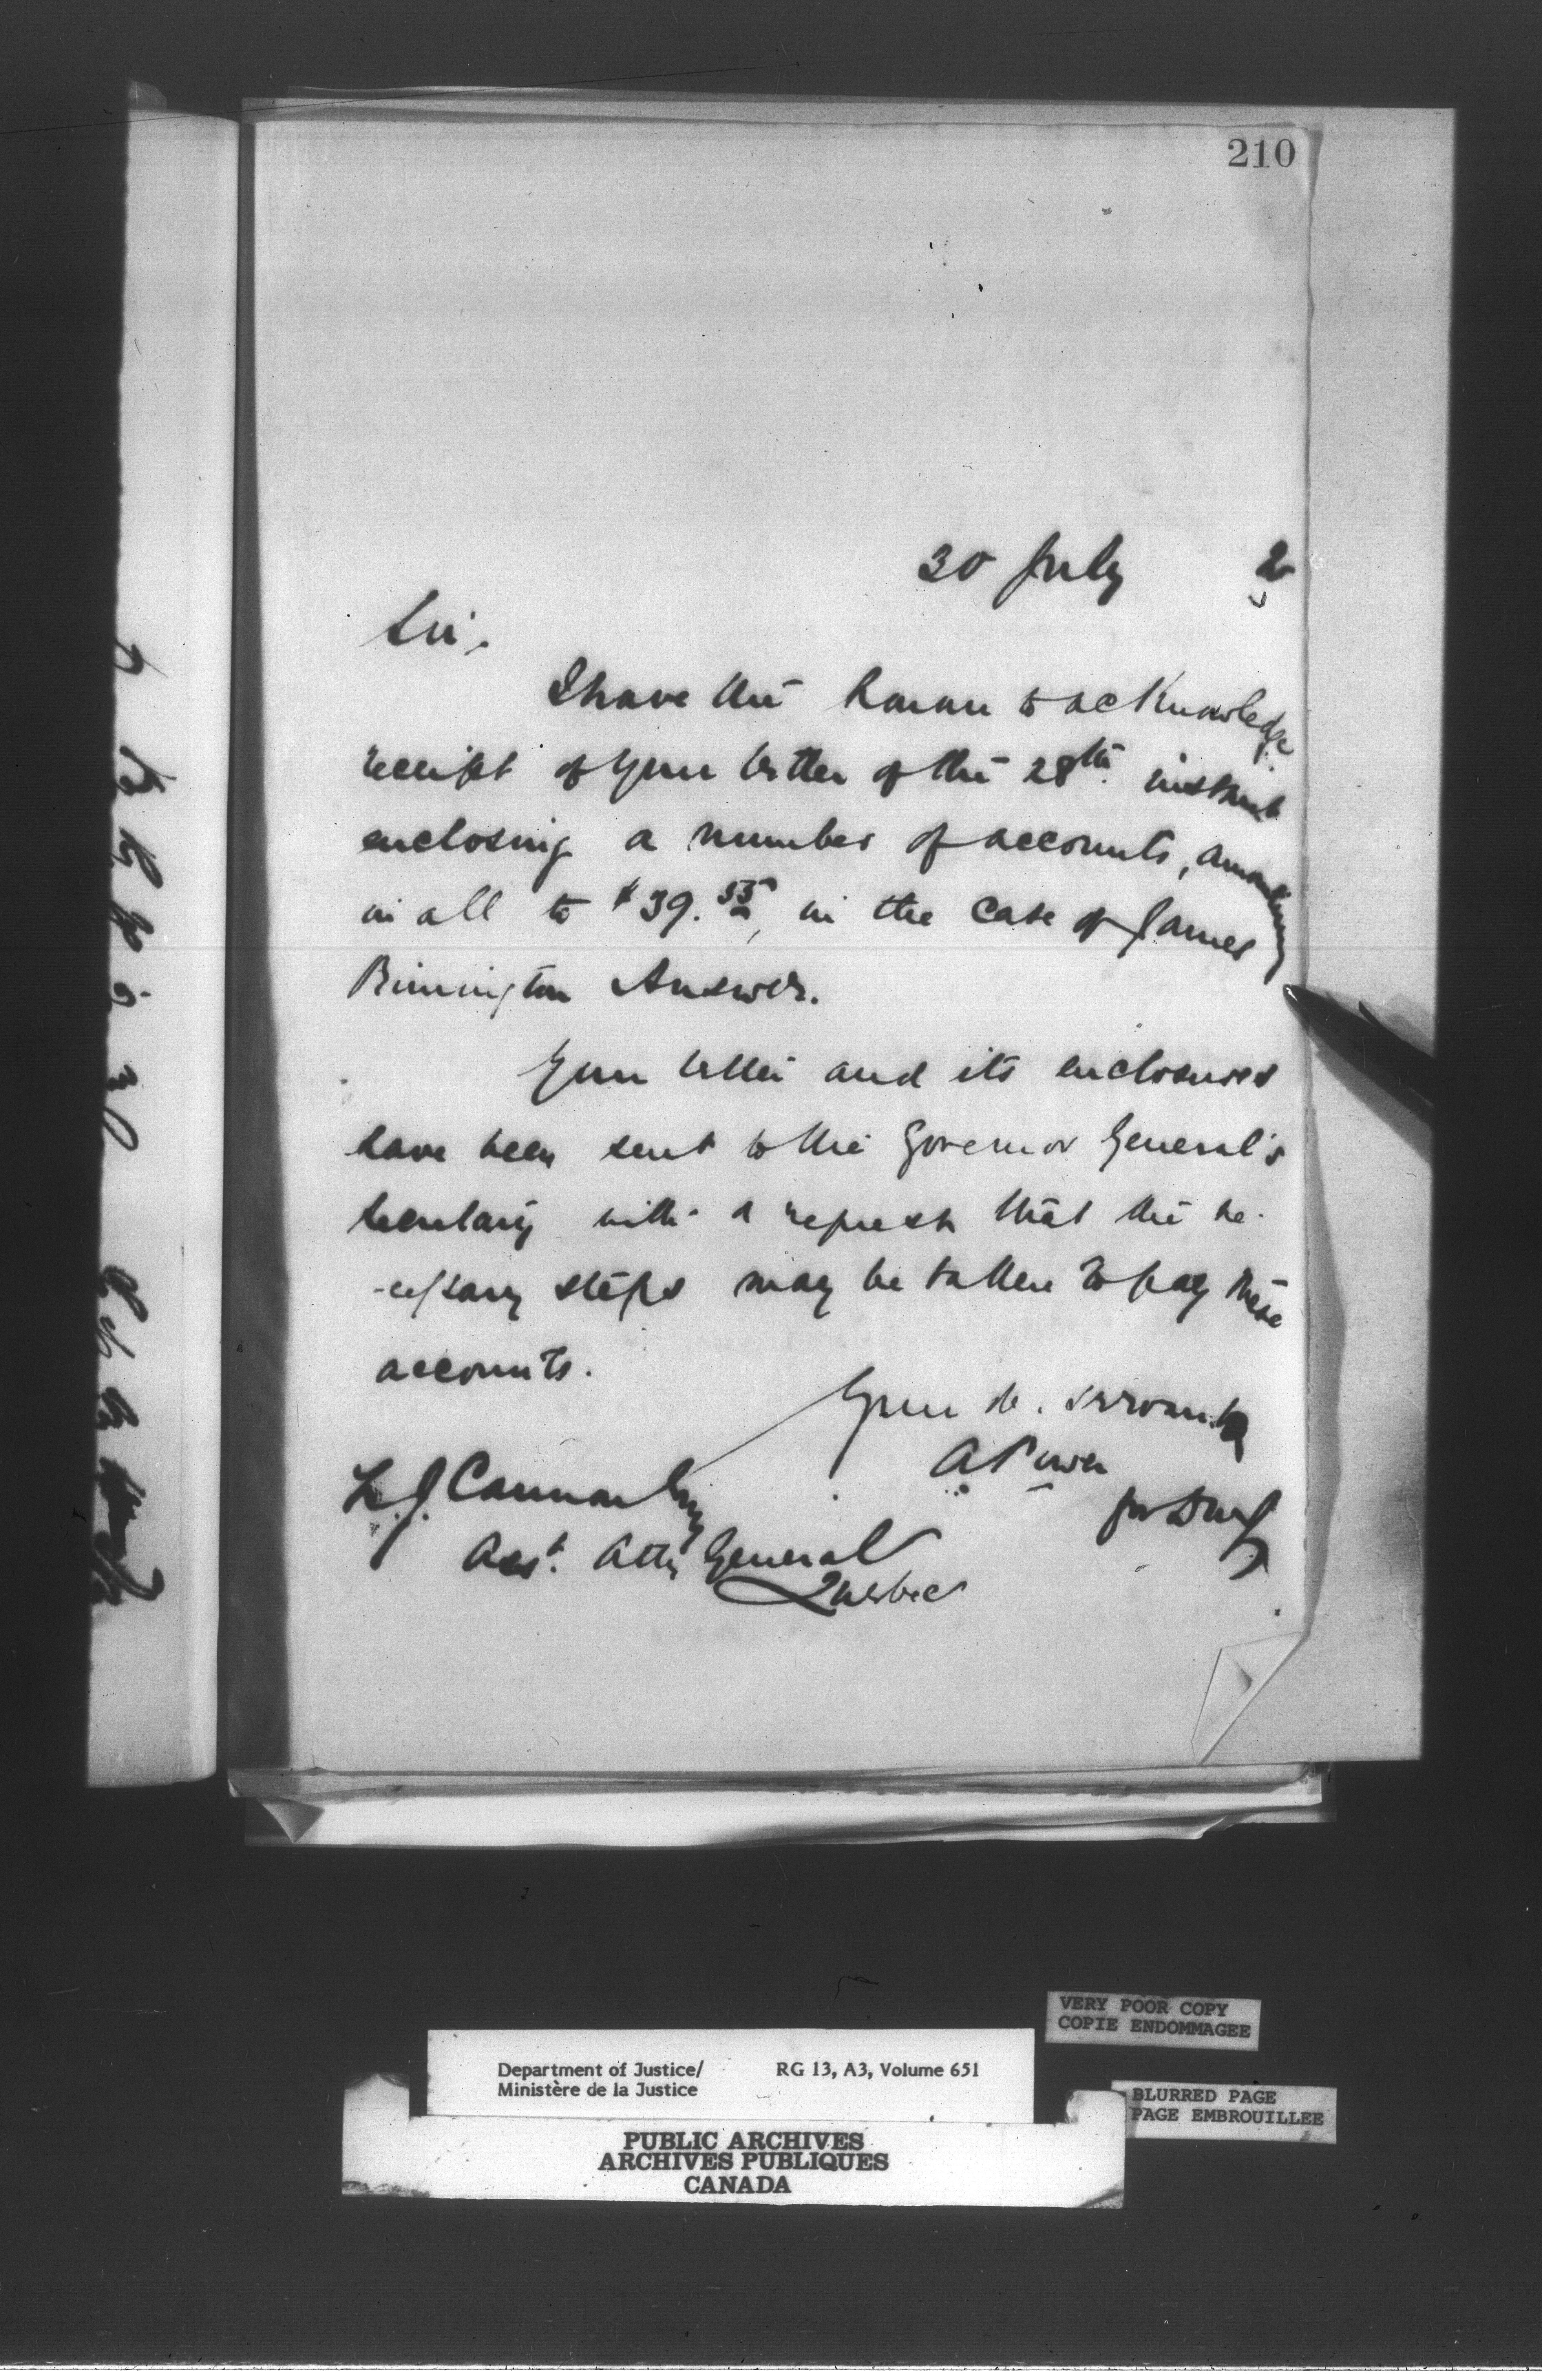 210
30 July 2
Sir,
I have the honour to acknowledge
receipt of your letter of the 28th instant
enclosing a number of accounts, amounting
in all to $39.55, in the case of James
Rimington Answer.
Your letter and its enclosures
have been sent to the Governor General's
Secretary with a request that the ne-
-cessary steps may be taken to pay these
accounts.
Your ob. servant
A Power
for DMJ
L. J. Cannon Esq
Asst. Atty General
Quebec
VERY POOR COPY
COPIE ENDOMMAGEE
Department of Justice/ RG 13, A3, Volume 651
Ministère de la Justice
BLURRED PAGE
PAGE EMBROUILLEE
PUBLIC ARCHIVES
ARCHIVES PUBLIQUES
CANADA